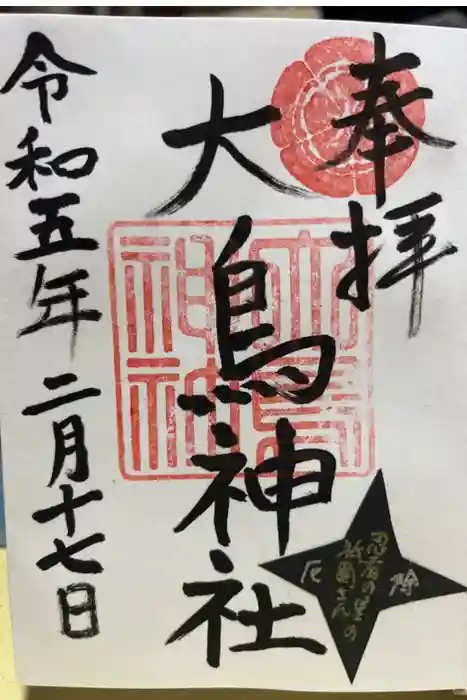 奉拝
大鳥神社
令和五年二月十七日
忍者の里の
祇園さん
厄除